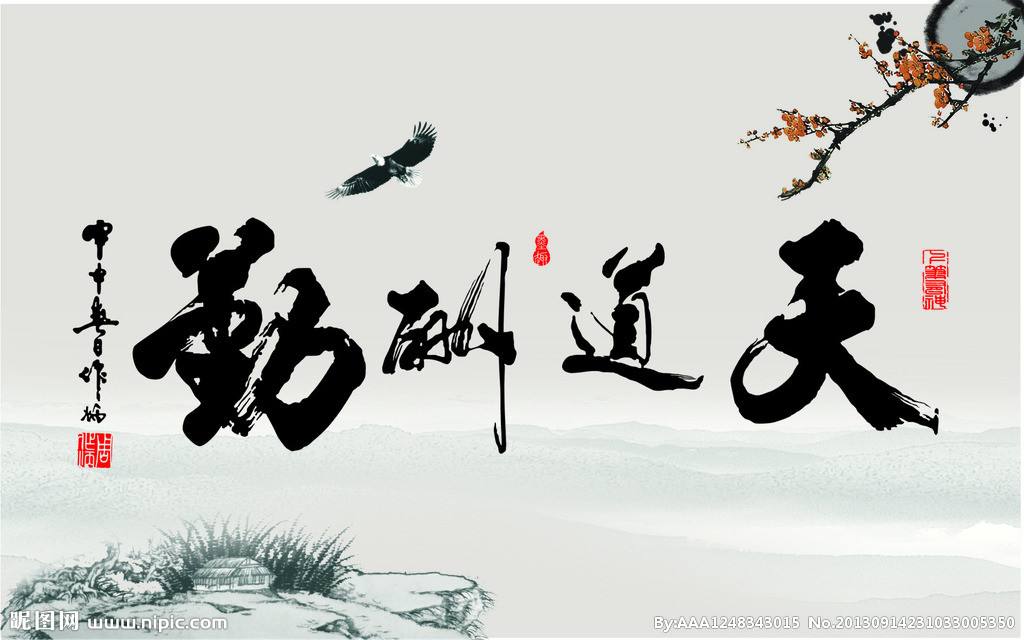 天道酬勤
甲申春日作炳
昵图网 www.nipic.com
By:AAA1248343015 No.20130914231033005350